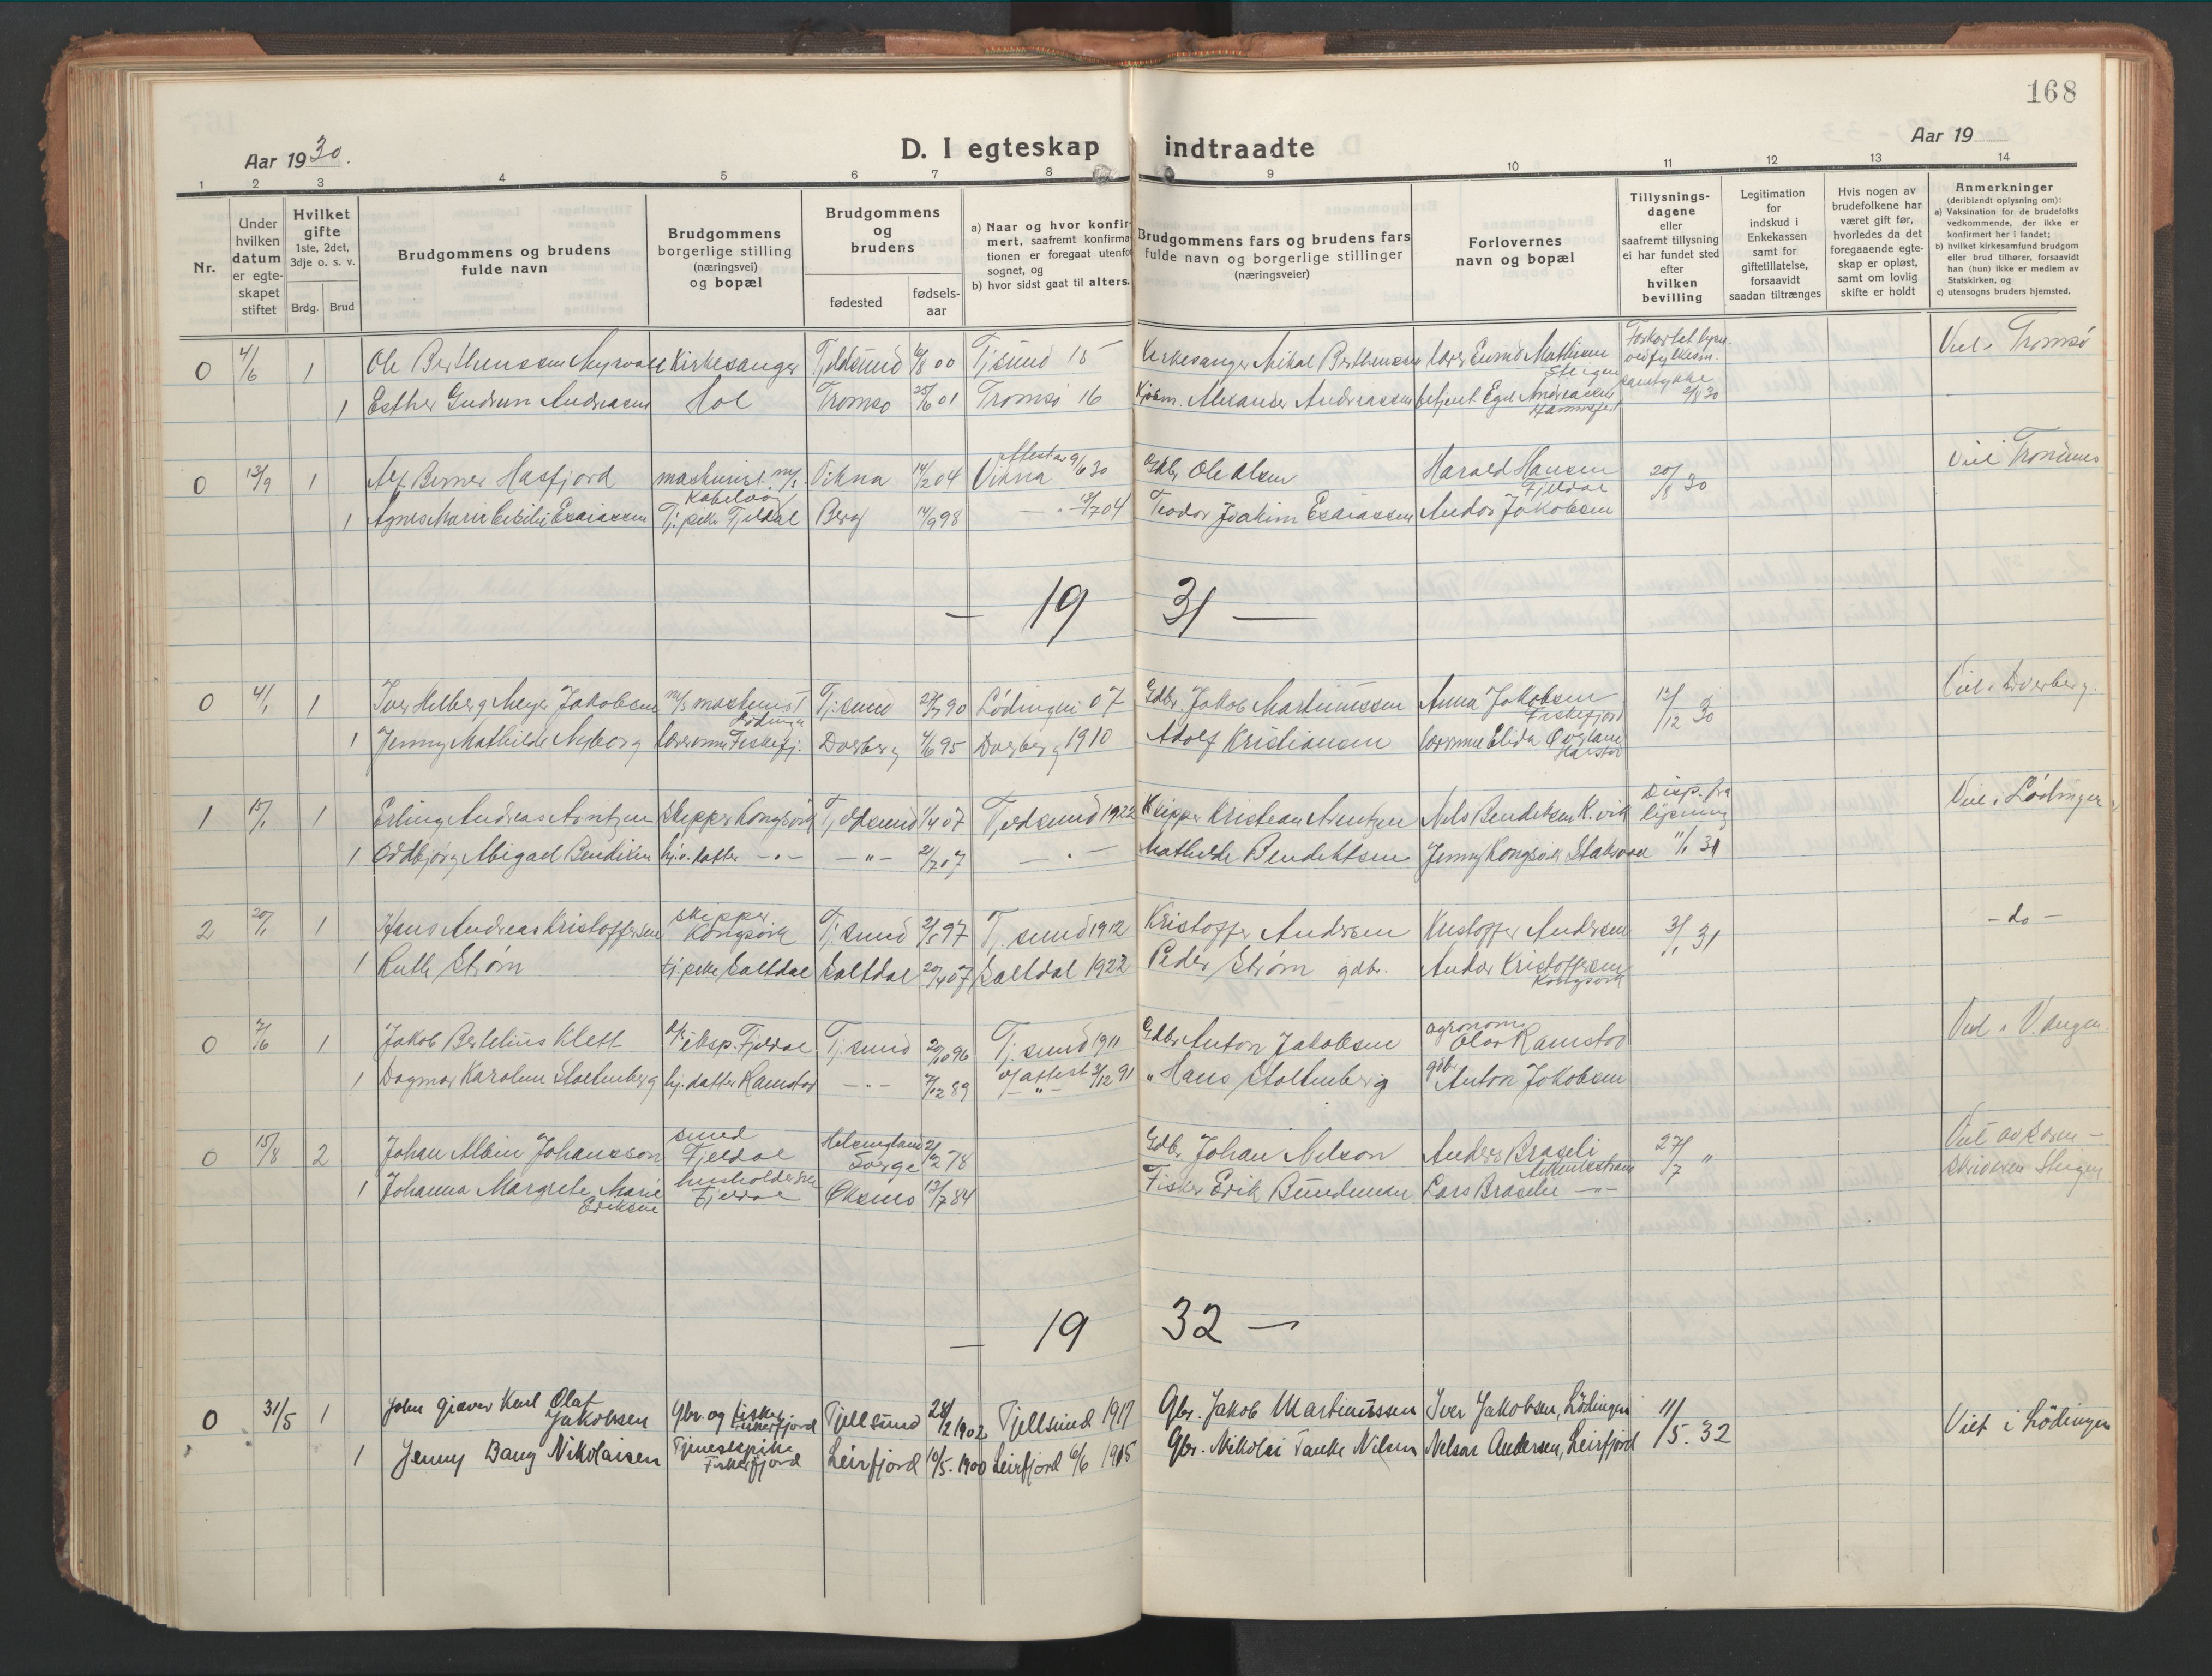 168
Aar 1930.
D. I egteskap indtraadte
Aar 19
1 2 3 4 5 6 7 8 9 10 11 12 13 14
Nr.
Under hvilken datum er egteskapet stiftet
Hvilket gifte 1ste, 2det, 3dje o. s. v.
Brdg. Brud
Brudgommens og brudens fulde navn
Brudgommens borgerlige stilling (næringsvei) og bopæl
Brudgommens og brudens
fødested
fødsels-aar
a) Naar og hvor konfirmert, saafremt konfirmationen er foregaat utenfor sognet, og
b) hvor sidst gaat til alters.
Brudgommens fars og brudens fars fulde navn og borgerlige stillinger (næringsveier)
Forlovernes navn og bopæl
Tillysningsdagene eller saafremt tillysning ei har fundet sted efter hvilken bevilling
Legitimation for indskud i Enkekassen samt for giftetillatelse, forsaavidt saadan tiltrænges
Hvis nogen av brudefolkene har været gift før, hvorledes da det foregaaende egteskap er opløst, samt om lovlig skifte er holdt
Anmerkninger (deriblandt oplysning om):
a) Vaksination for de brudefolks vedkommende, der ikke er konfirmert her i landet;
b) hvilket kirkesamfund brudgom eller brud tilhører, forsaavidt han (hun) ikke er medlem av Statskirken, og
c) utensogns bruders hjemsted.
0 4/6 1 Ole Bertheussen Myrvold Kirkesanger Tjeldsund 6/8 00 Tj.sund 15 Kirkesanger Mikal Bertheussen lærer Mathisen Steigen Viet i Tromsø
1 Esther Gudrun Andreassen Hol Tromsø 25/6 01 Tromsø 16 Kjøbm. Alexander Andreassen betjent Egil Andreassen Hammerfest 2/5 30
0 13/9 1 Alf Berner Hasfjord maskinist m/s Kabelvåg Vikna 14/2 04 Vikna Attest av 9/6 30 Gdbr. Ole Olsen Harald Hansen Fjeldal 20/8 30 Viet i Trondenes
1 Agnes Marie Cecilie Esaiassen Tj.pike Fjeldal Berg 14/9 98 Teodor Joakim Esaiassen Andor Jakobsen
— 19 31 —
0 4/1 1 Iver Helberg Meyer Jakobsen m/s maskinist Lødingen Tj.sund 27/7 90 Lødingen 07 Gdbr. Jakob Martinussen Anna Jakobsen Fiskefjord 12/12 30 Viet i Dverberg.
1 Jenny Mathilde Nyborg lærerinne Fiskefj. Dverberg 4/6 95 Dverberg 1910 Adolf Kristiansen lærerinne Elida Harstad
1 15/1 1 Erling Andreas Arntzen skipper Kongsvik Tjeldsund 1/4 07 Tjeldsund 1922 Skipper Kristian Arntzen Nils Bendiksen K.vik Disp. fra lysning Viet i Lødingen
1 Oddbjørg Abigael Bendiksen hj.v. datter — " — — " — 21/7 07 — " — Mathilde Bendiktsen Jenny Kongsvik 11/1 31
2 20/1 1 Hans Andreas Kristoffersen skipper Kongsvik Tj.sund 2/5 97 Tj.sund 1912 Kristoffer Andersen Kristoffer Andersen 3/1 31 — do —
1 Ruth Strøm tj.pike Saltdal Saltdal 20/4 07 Saltdal 1922 Peder Strøm gdbr. Andor Kristoffersen Kongsvik
0 7/6 1 Jakob Bertelius Klett eksp. Fjeldal Tj.sund 20/10 96 Tj.sund 1911 Gdbr. Anton Jakobsen agronom Olav Ramstad
1 Dagmar Karoline Stoltenberg hj. datter Ramstad — " — 7/12 89 " Hans Stoltenberg gdbr. Anton Jakobsen
0 15/8 2 Johan Albin Johansson smed Fjeldal Helsingland 21/2 78 Gdbr. Johan Nelson Anders Braseli 27/7 "
1 Johanna Margrete Marie Eriksen husholderske Fjeldal Øksnes 13/7 84 Fisker Erik Lars Braseli — " —
— 19 32 —
0 31/5 1 John Giæver Karl Olaf Jakobsen Gbr. og fisker Fiskefjord Tjellsund 28/2 1902 Tjellsund 1917 Gbr. Jakob Martinussen Iver Jakobsen, Lödingen 11/5. 32 Viet i Lödingen
1 Jenny Baug Nikolaisen Tjenestpike Fiskefjord Leirfjord 10/5. 1900 Leirfjord 6/6 1915 Gbr. Nikolai Tanke Nilsen Nelsar Andersen, Leirfjord